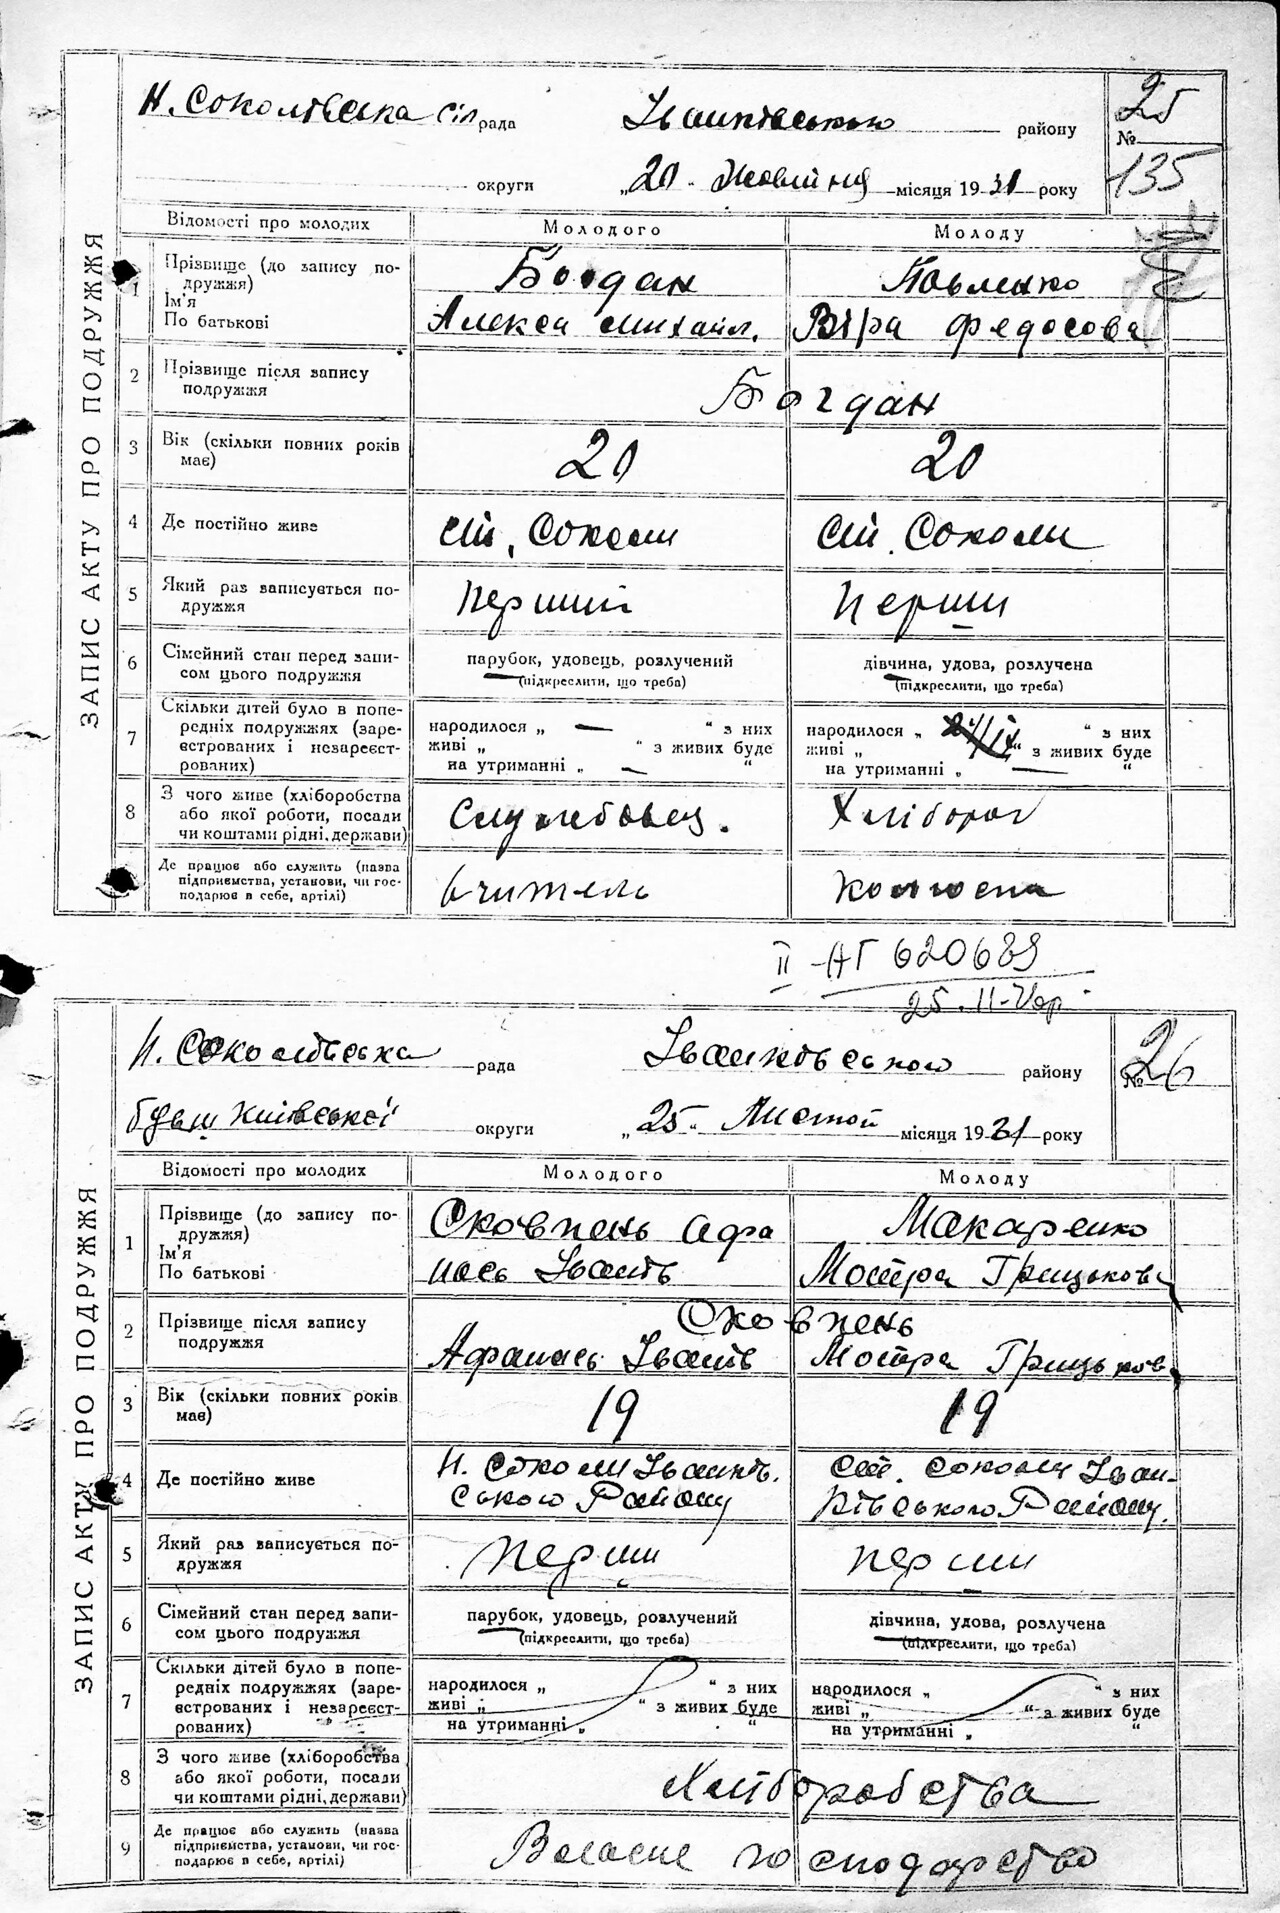 ЗАПИС АКТУ ПРО ПОДРУЖЖЯ
Н. Соколівська сіл рада Іванківського району
№ 25
135
округи „20„ Жовтня місяця 1931 року
Відомості про молодих Молодого Молоду
1 Прізвище (до запису подружжя) Богдан Павленко
Ім'я
По батькові Алекса Михайл. Віра Федосова
2 Прізвище після запису
подружжя Богдан
3 Вік (скільки повних років
має) 20 20
4 Де постійно живе Соколи Соколи
5 Який раз записується по-
дружжя перший перши
6 Сімейний стан перед запи-
сом цього подружжя
парубок, удовець, розлучений
(підкреслити, що треба)
дівчина, удова, розлучена
(підкреслити, що треба)
7 Скільки дітей було в попе-
редніх подружжях (заре-
єстрованих і незареєст-
рованих)
народилося „ — “ з них
живі „ “ з живих буде
на утриманні „ — “
народилося „ “ з них
живі „ “ з живих буде
на утриманні „ — “
8 З чого живе (хліборобства
або якої роботи, посади
чи коштами рідні, держави)
Службовец. Хлібороб
Де працює або служить (назва
підприємства, установи, чи гос-
подарює в себе, артілі)
вчитель колгоспи
II-АГ 620689
25.II-
ЗАПИС АКТУ ПРО ПОДРУЖЖЯ
Н. Соколівська рада Іванківського району
№ 26
бувш Київської округи „25„ Листопад місяця 1931 року
Відомості про молодих Молодого Молоду
1 Прізвище (до запису по-
дружжя)
Ім'я
По батькові
Сковпень Афа
нась Іванів
Макаренко
Мотра Грицькова
2 Прізвище після запису
подружжя
Сковпень
Афанась Іванів Мотра Грицьков.
3 Вік (скільки повних років
має) 19 19
4 Де постійно живе
Н. Соколи Іванків.
ського Району
Соколи Іван-
ківського Району.
5 Який раз записується по-
дружжя перши перши
6 Сімейний стан перед запи-
сом цього подружжя
парубок, удовець, розлучений
(підкреслити, що треба)
дівчина, удова, розлучена
(підкреслити, що треба)
7 Скільки дітей було в попе-
редніх подружжях (заре-
єстрованих і незареєст-
рованих)
народилося „ “ з них
живі „ “ з живих буде
на утриманні „ “
народилося „ “ з них
живі „ “ з живих буде
на утриманні „ “
8 З чого живе (хліборобства
або якої роботи, посади
чи коштами рідні, держави)
Хліборобства
9 Де працює або служить (назва
підприємства, установи, чи гос-
подарює в себе, артілі)
Власне господарство